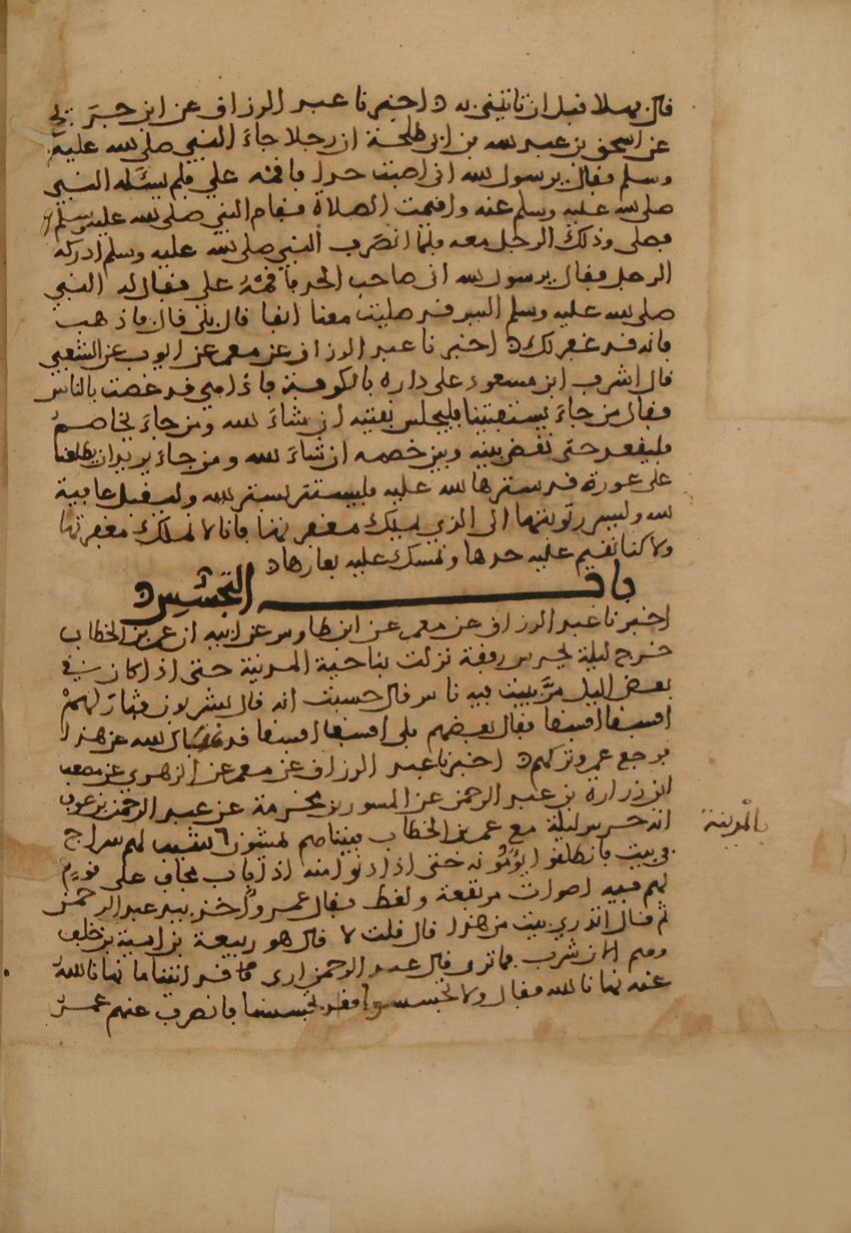 قال فهلا قبل ان تاتيني به اخبرنا عبد الرزاق عن ابن جريج
عن اسحق بن عبد الله بن ابي طلحة ان رجلا جاء النبي صلى الله عليه
وسلم فقال يرسول الله اني اصبت حدا فاقمه علي فلم يسئله النبي
صلى الله عليه وسلم عنه واقيمت الصلاة فقام النبي صلى الله عليه وسلم
فصلى وذلك الرجل معه فلما انصرف النبي صلى الله عليه وسلم ادركه
الرجل فقال يرسول الله اني صاحب الحد فاقمه علي فقال له النبي
صلى الله عليه وسلم اليس قد صليت معنا انفا قال بلى قال فاذهب
فانه قد غفر لك اخبرنا عبد الرزاق عن معمر عن ايوب عن الشعبي
قال اشرف ابن مسعود على داره بالكوفة فاذا هي قد غصت بالناس
فقال من جاء يستفتينا فليجلس نفتيه ان شاء الله ومن جاء يخاصم
فليقعد حتى نقضي بينه وبين خصمه ان شاء الله ومن جاء يريد ان يطلعنا
على عورة قد سترها الله عليه فليستتر بستر الله وليقبل عافية
الله وليسرر توبتها الى الذي يملك مغفرتها فانا لا نملك مغفرتها
ولاكنا نقيم عليه حدها ونمسك عليه بعارها
باب التجسس
اخبرنا عبد الرزاق عن معمر عن ابن طاوس عن ابيه ان عمر بن الخطاب
خرج ليلة يحرس رفقة نزلت بناحية المدينة حتى اذا كان في
بعض الليل مر ببيت فيه ناس قال حسبت انه قال يشربون فثار لهم
افسقا افسقا فقال بعضهم بلى افسقا افسقا قد نهاك الله عن هذا
فرجع عمر وتركهم اخبرنا عبد الرزاق عن معمر عن الزهري عن مصعب
ابن زرارة بن عبد الرحمن عن المسور بن مخرمة عن عبد الرحمن بن عوف
انه حرس ليلة مع عمر بن الخطاب فبينا هم يمشون شب لهم سراج
بالمدينة
في بيت فانطلقوا يؤمونه حتى اذا دنوا منه اذا باب مجاف على قوم
لهم فيه اصوات مرتفعة ولغط فقال عمر واخذ بيد عبد الرحمن
ثم قال اتدري بيت من هذا قال قلت لا قال هو ربيعة بن امية بن خلف
وهم الان شرب فما ترى قال عبد الرحمن ارى قد اتينا ما نهانا الله
عنه نهانا الله فقال ولا تجسسوا فقد تجسسنا فانصرف عنهم عمر